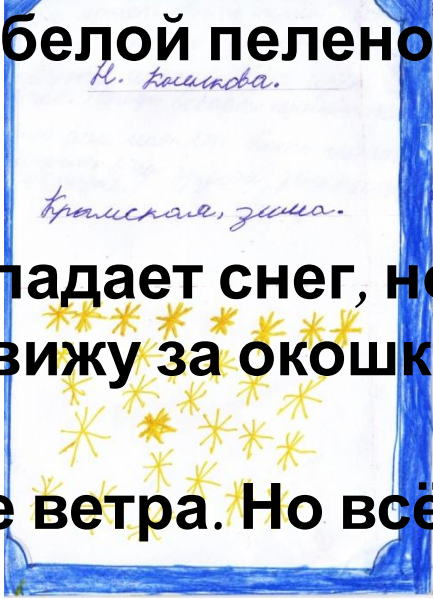 белой пелено
Н. Кошлкова.
Крымская, зима.
падает снег, не
вижу за окошк
е ветра. Но всё